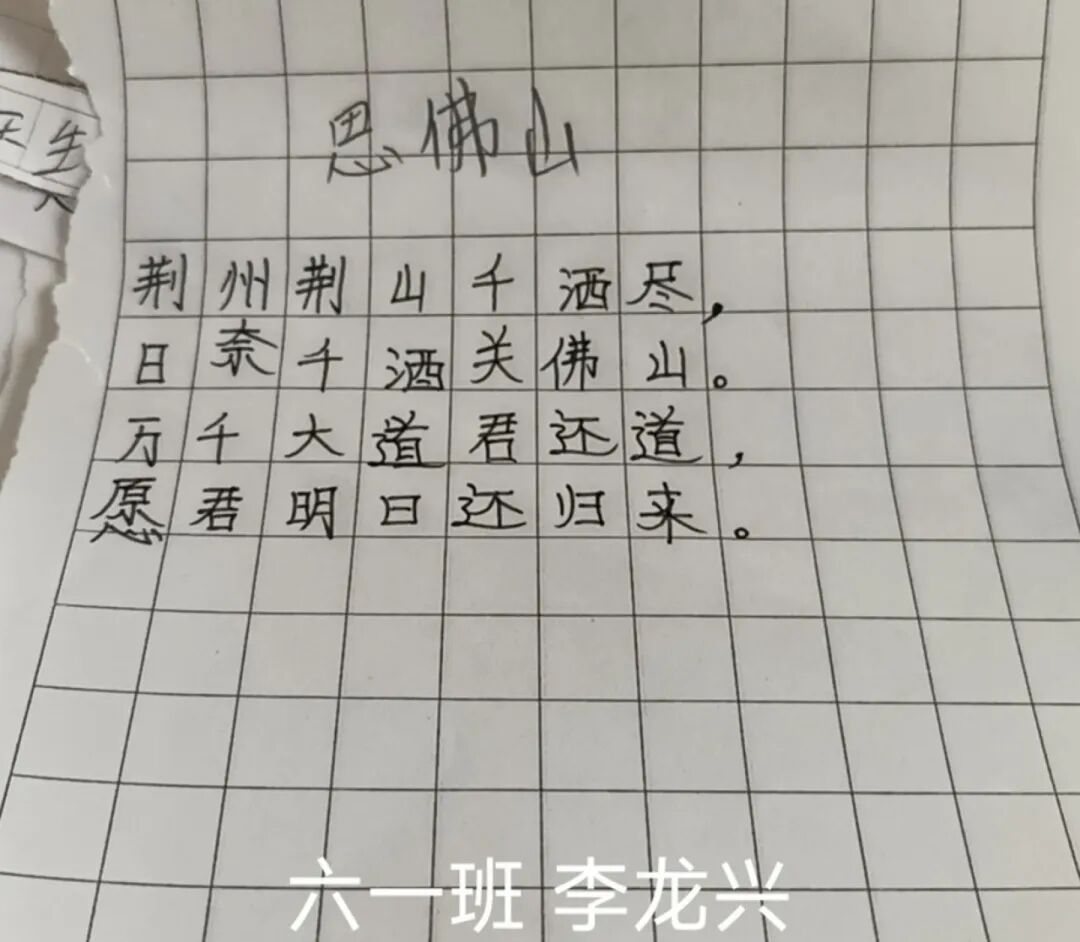 恩佛山
荆州荆山千洒尽，
日奈千洒关佛山。
万千大道君还道，
愿君明日还归来。
六一班 李龙兴